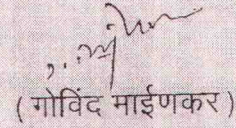 ( गोविंद माईणकर )